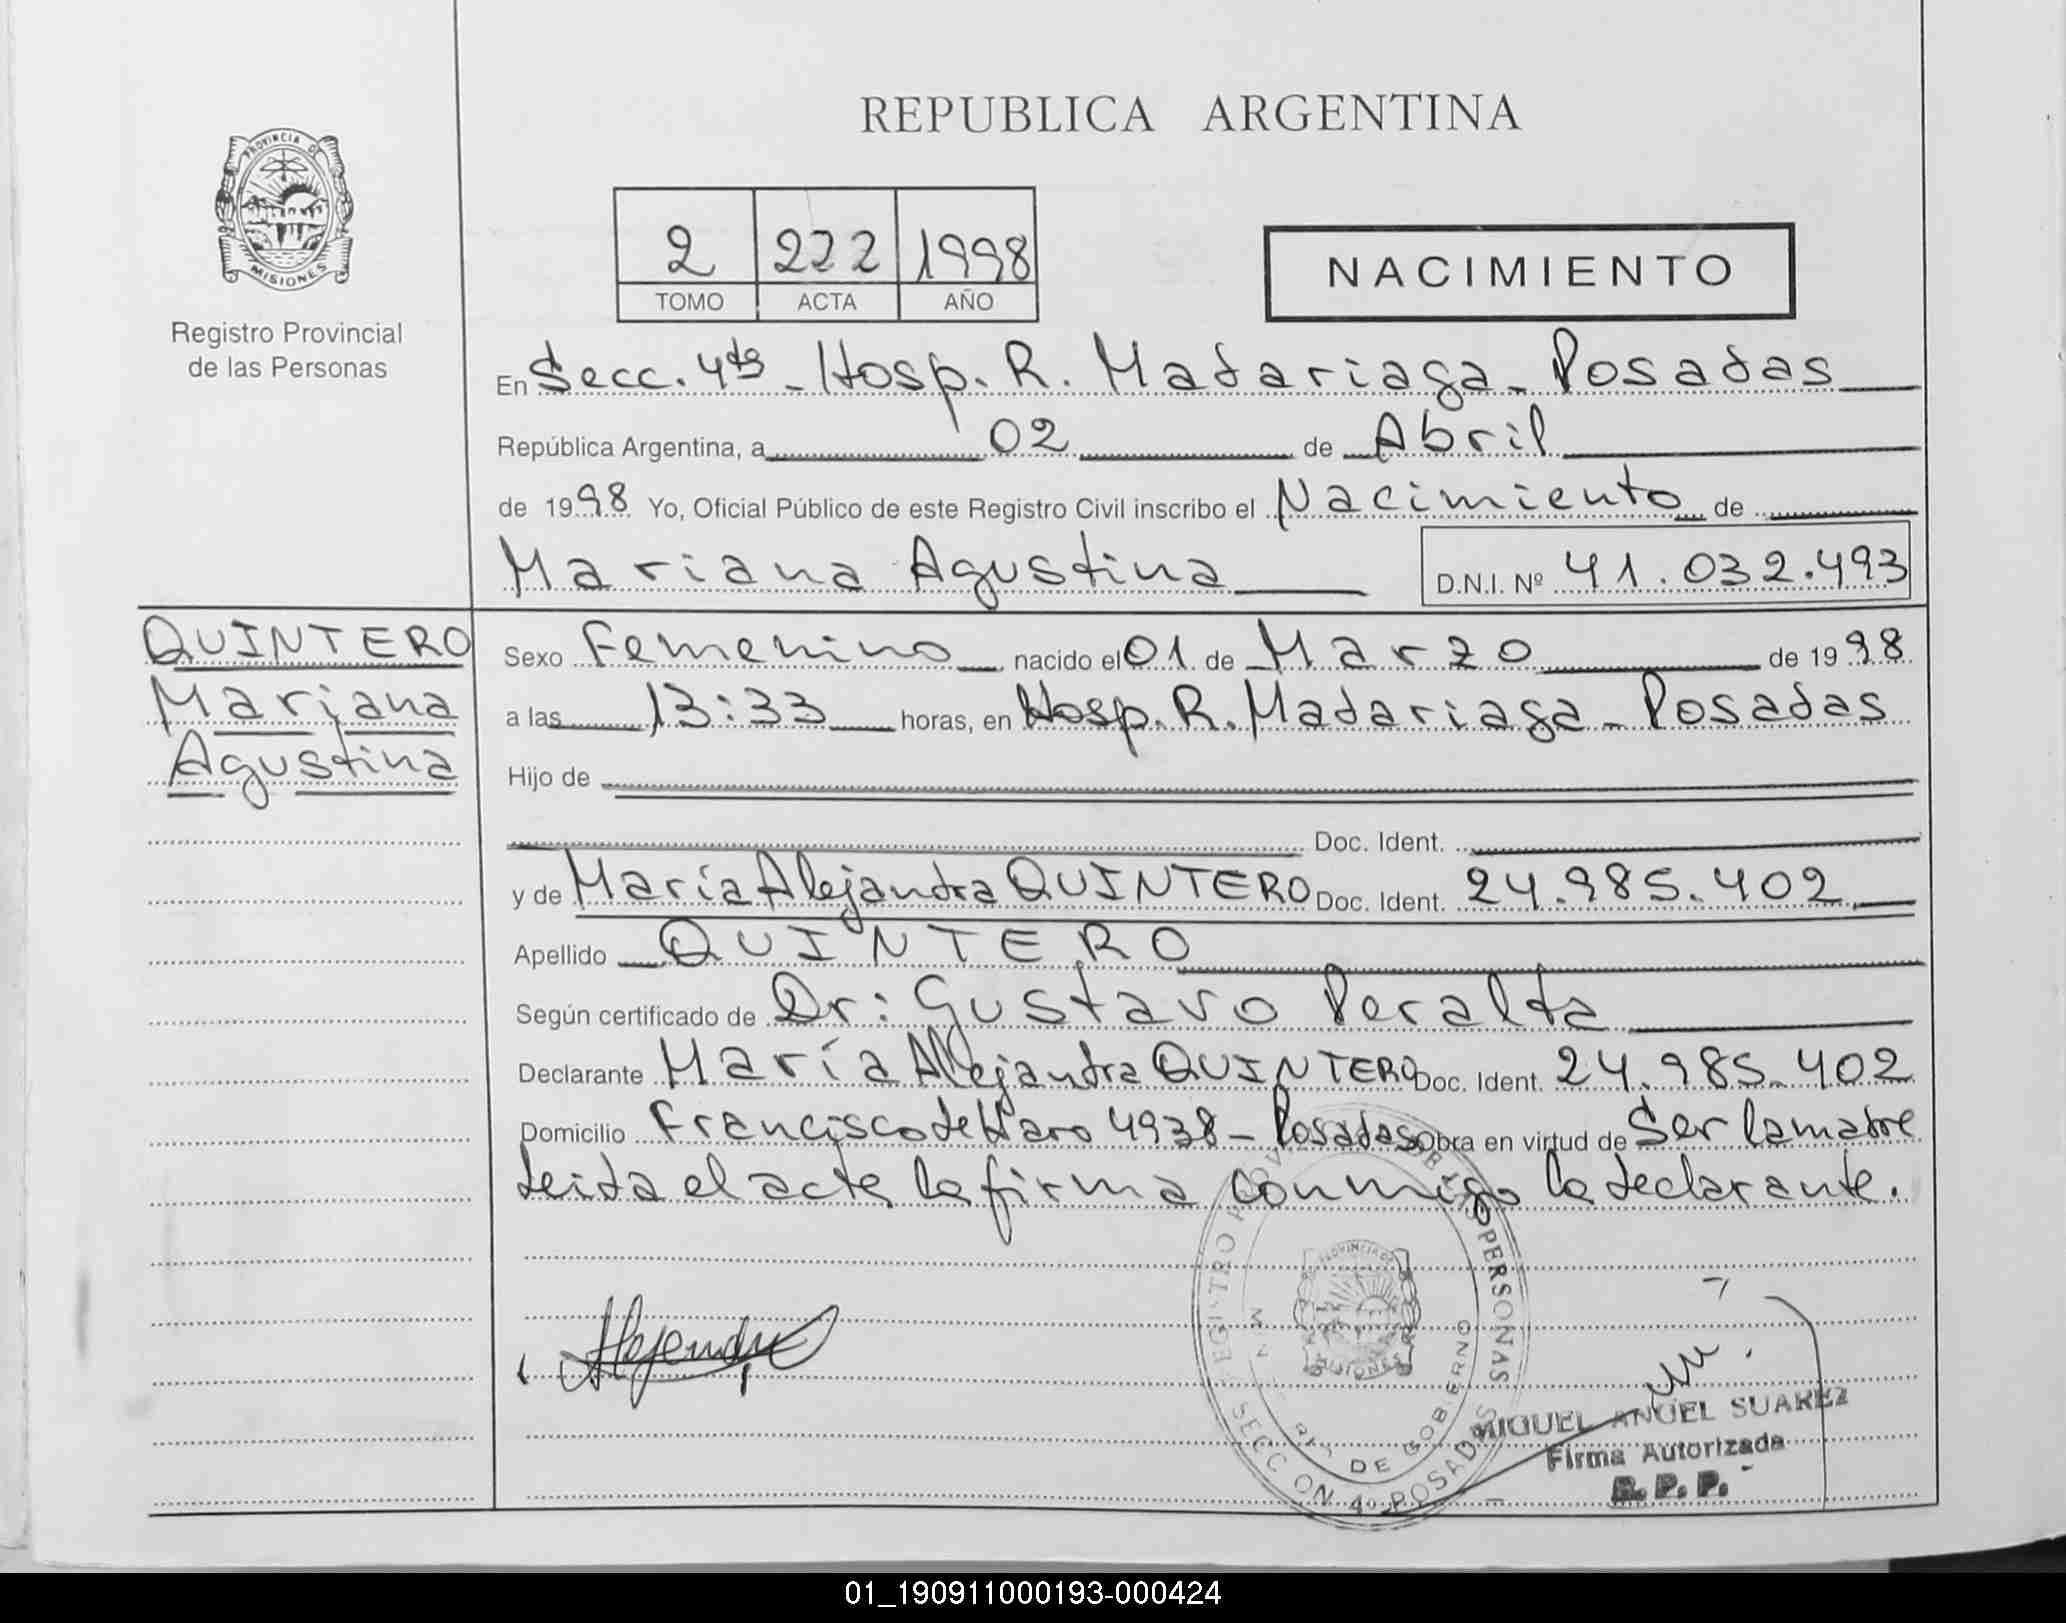 REPUBLICA ARGENTINA
PROVINCIA DE
MISIONES
Registro Provincial
de las Personas
2 222 1998
TOMO ACTA AÑO
NACIMIENTO
En Secc. 4ta - Hosp. R. Madariaga - Posadas
República Argentina, a 02 de Abril
de 1998 Yo, Oficial Público de este Registro Civil inscribo el Nacimiento de
Mariana Agustina D.N.I. Nº 41.032.493
QUINTERO
Mariana
Agustina
Sexo Femenino nacido el 01 de Marzo de 1998
a las 13:33 horas, en Hosp. R. Madariaga - Posadas
Hijo de
Doc. Ident.
y de María Alejandra QUINTERO Doc. Ident. 24.985.402
Apellido QUINTERO
Según certificado de Dr: Gustavo Peralta
Declarante María Alejandra QUINTERO Doc. Ident. 24.985.402
Domicilio Francisco de Haro 4938 - Posadas Obra en virtud de Ser la madre
leida el acta la firma conmigo la declarante.
Alejandra
PERSONAS
DE GOBIERNO
SECCION 4º POSADAS
MIGUEL ANGEL SUAREZ
Firma Autorizada
R. P. P.
01_190911000193-000424